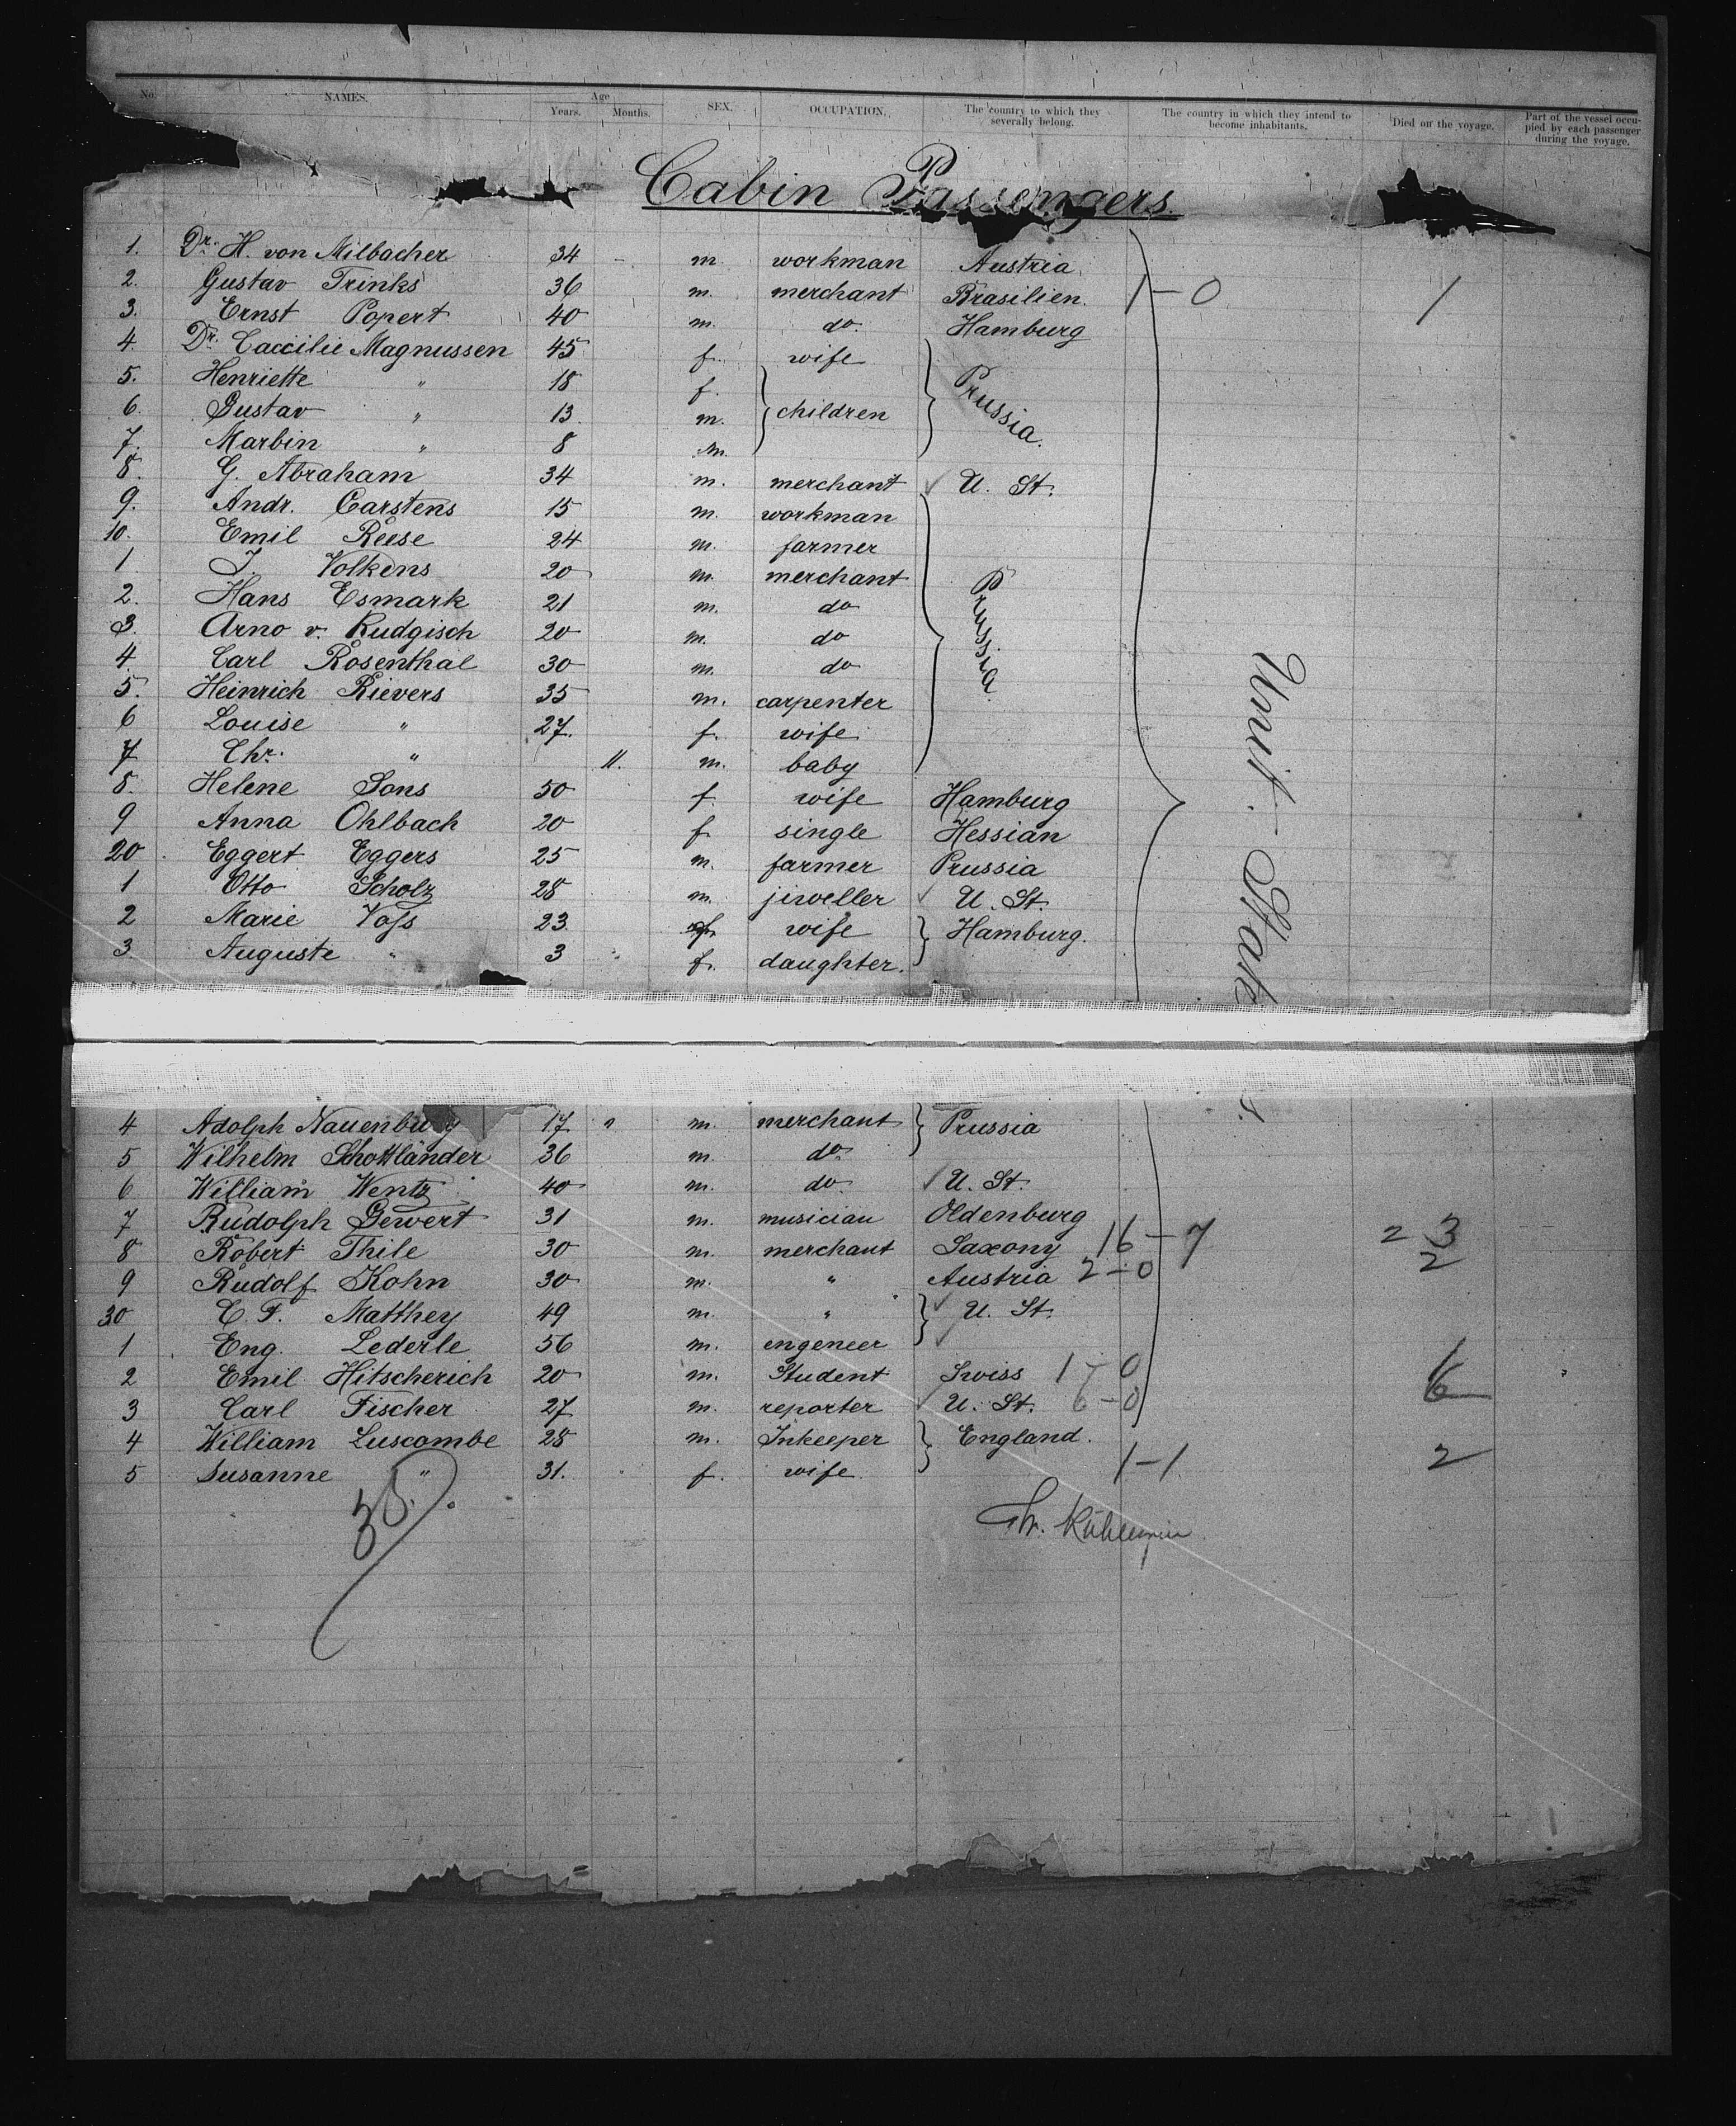 No. NAMES. Age Years. Months. SEX. OCCUPATION. The country to which they severally belong. The country in which they intend to become inhabitants. Died on the voyage. Part of the vessel occupied by each passenger during the voyage.
Cabin Passengers.
1. Dr. H. von Milbacher 34 - m workman Austria
2. Gustav Trinks 36 m. merchant Brasilien. 1-0 1
3. Ernst Popert 40 m. do. Hamburg
4. Dr. Caecilie Magnussen 45 f. wife
5. Henriette " 18 f.
6. Gustav " 13 m. children Prussia.
7. Marbin " 8 m.
8. G. Abraham 34 m. merchant ✓ U. St.
9. Andr. Carstens 15 m. workman
10. Emil Reese 24 m. farmer
1 J. Volkens 20 m. merchant Prussia.
2. Hans Esmark 21 m. do
3. Arno v. Rudgisch 20 m. do
4. Carl Rosenthal 30 m. do
5. Heinrich Rievers 35 m. carpenter
6 Louise " 27. f. wife
7 Chr. " 11. m. baby
8. Helene Sons 50 f. wife Hamburg
9 Anna Ohlbach 20 f. single Hessian
20 Eggert Eggers 25 m. farmer Prussia
1 Otto Scholz 28 m. jiweller ✓ U. St.
2 Marie Voss 23 f. wife Hamburg.
3 Auguste " 3 " f. daughter.
Unit. States.
4 Adolph Nauenburg 17 " m. merchant Prussia
5 Wilhelm Schottländer 36 m. do.
6 William Wentz 40 m. do. ✓ U. St.
7 Rudolph Gewert 31 m. musician Oldenburg
8 Robert Thile 30 m. merchant Saxony 16-7 2 3
9 Rudolf Kohn 30 m. " Austria 2-0 2
30 C. F. Matthey 49 m. " ✓ U. St.
1 Eng. Lederle 56 m. engeneer ✓
2 Emil Hitscherich 20 m. Student Swiss 1-0 1
3 Carl Fischer 27 m. reporter ✓ U. St. 6-0 6
4 William Luscombe 28 m. Inkeeper England.
5 Susanne " 31. " f. wife 1-1 2
35.